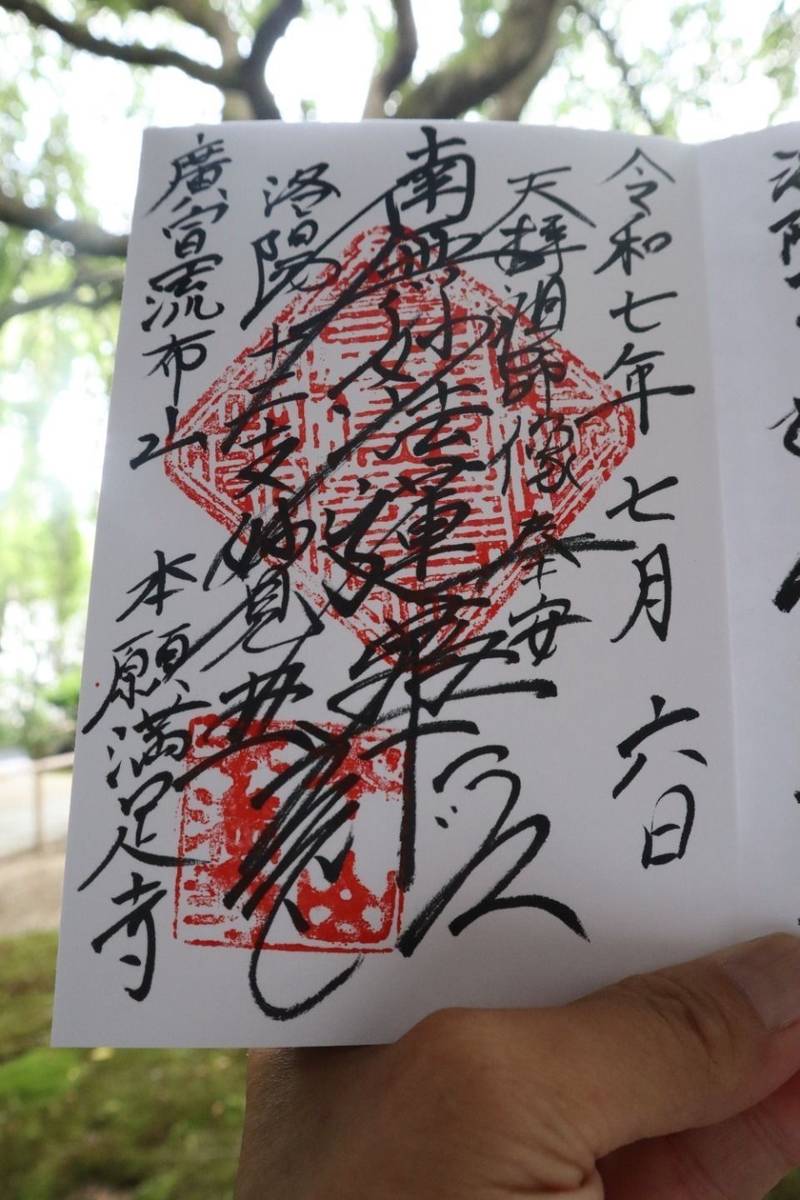 令和七年七月六日
天拝祖師像奉安
南無妙法蓮華経
洛陽十二支妙見
廣宣流布山 本願満足寺